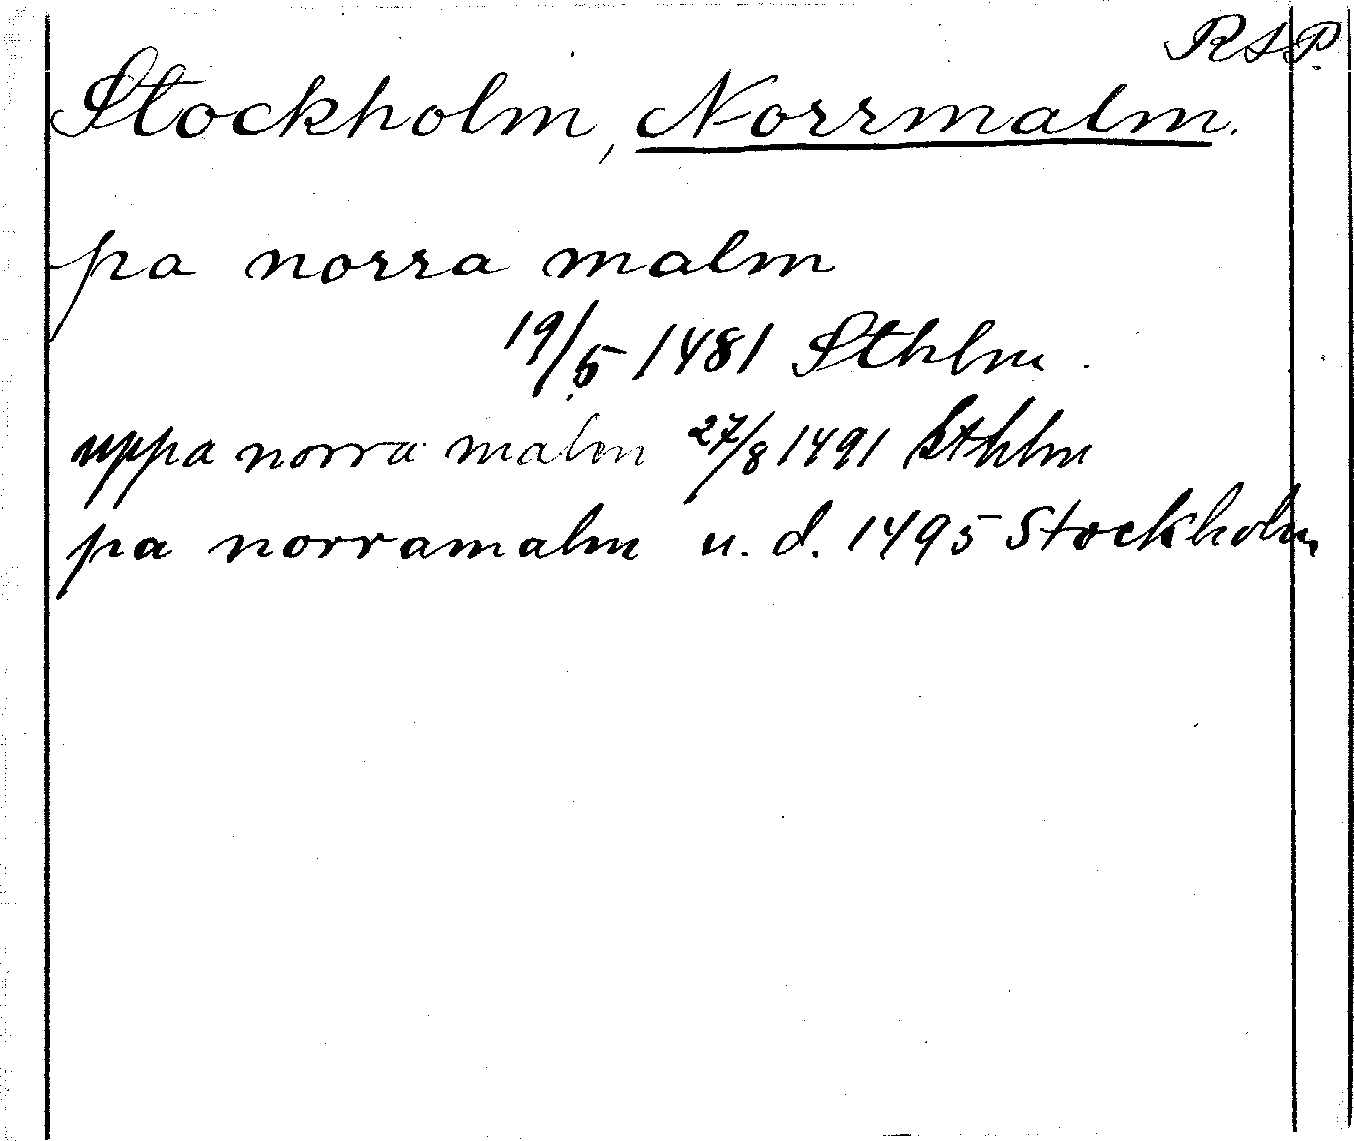 RSP.
Stockholm, Norrmalm.
pa norra malm
19/5 1481 Sthlm.
uppa norra malm 27/8 1491 Sthlm
pa norramalm u. d. 1495 Stockholm